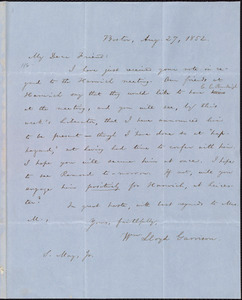 Boston, Aug. 27, 1852.
My Dear Friend:
I have just received your note in re-
gard to the Harwich meeting. Our friends at
Harwich say that they would like to have C. C. Burleigh
at the meeting, and you will see, by this
week's Liberator, that I have announced him
to be present — though I have done so at "hap-
hazard," not having had time to confer with him.
I hope you will secure him at once. I hope
to see Remond to-morrow. If not, will you
engage him positively for Harwich, at
the
In great haste, with best regards to Mrs.
M.,
Yours, faithfully,
Wm. Lloyd Garrison.
S. May, Jr.